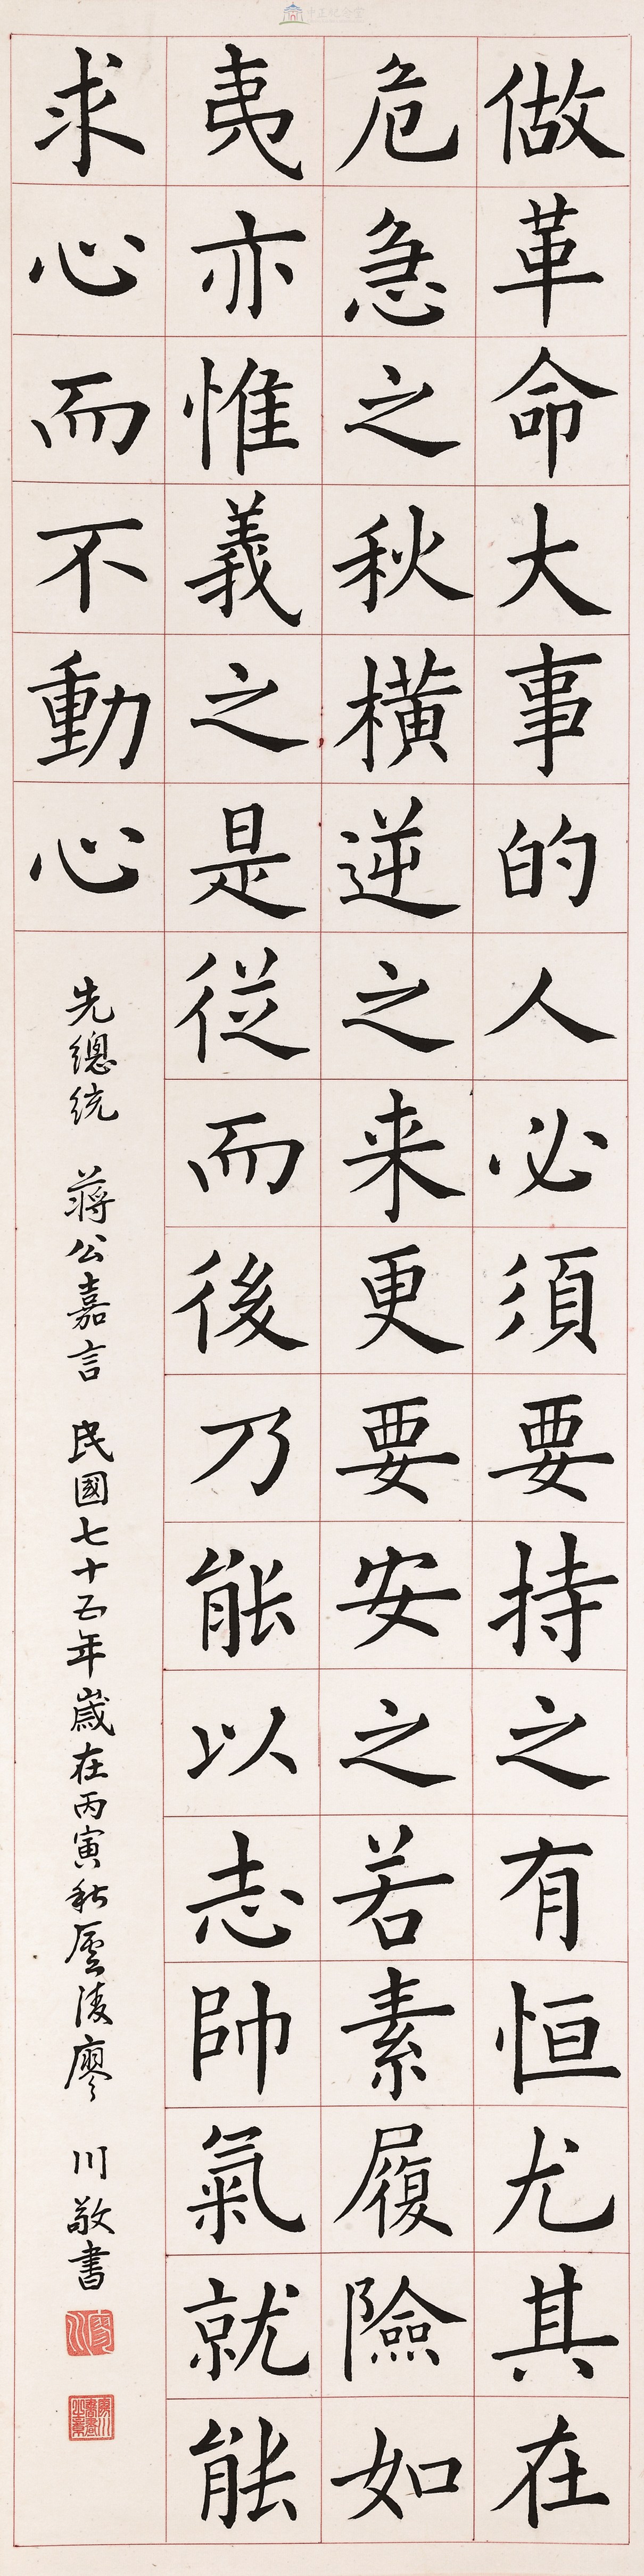 做革命大事的人必須要持之有恒尤其在
危急之秋橫逆之来更要安之若素履險如
夷亦惟義之是從而後乃能以志帥氣就能
求心而不動心
先總統 蔣公嘉言 民國七十五年歲在丙寅秋廬陵廖 川敬書